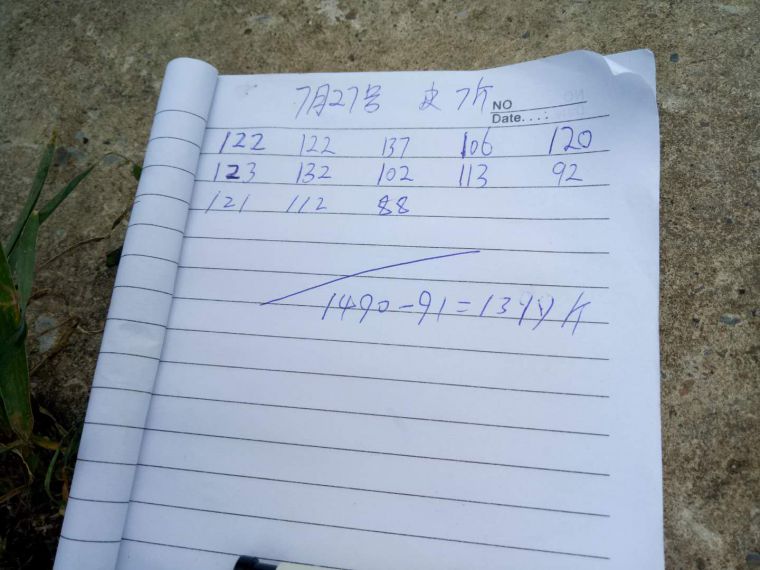 7月27号 皮 7斤
NO
Date....
122 122 137 106 120
123 132 102 113 92
121 112 88
1490-91=1399斤